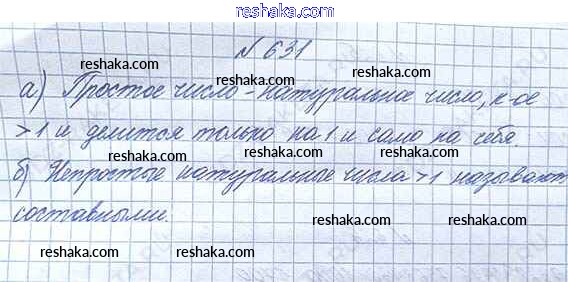 reshaka.com
№ 631
а) Простое число - натуральное число, к-ое
> 1 и делится только на 1 и само на себя.
б) Непростые натуральное числа > 1 называют
составными
reshaka.com reshaka.com reshaka.com
reshaka.com reshaka.com
reshaka.com reshaka.com reshaka.com
reshaka.com reshaka.com
reshaka.com reshaka.com
reshaka.com reshaka.com